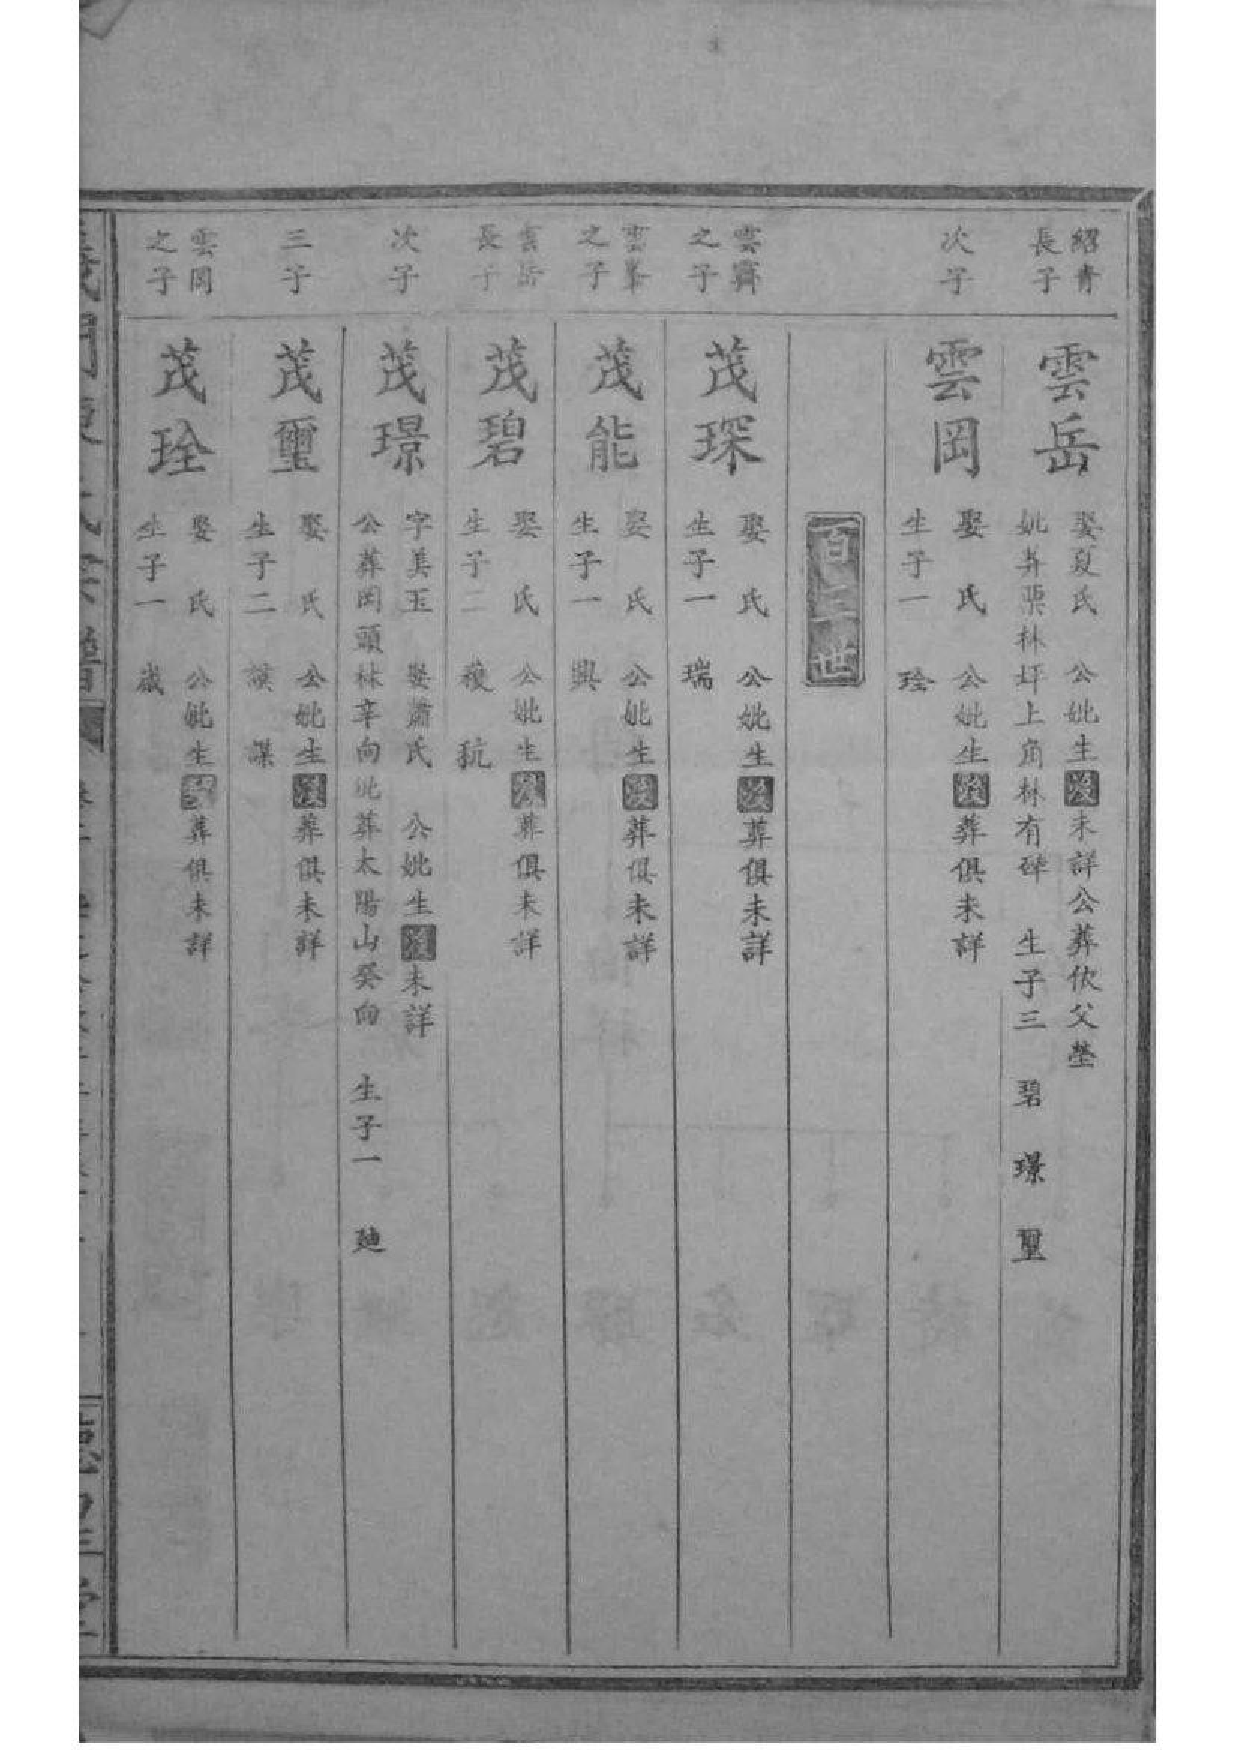 紹青
長子
雲岳
娶夏氏 公妣生歿未詳公葬依父塋
妣葬栗林坪上角林有碑 生子三 碧 璟 璽
次子
雲岡
娶 氏 公妣生歿葬俱未詳
生子一 珍
百二世
雲霽
之子
茂琛
娶 氏 公妣生歿葬俱未詳
生子一 瑞
雲峯
之子
茂能
娶 氏 公妣生歿葬俱未詳
生子一 興
雲岳
長子
茂碧
娶 氏 公妣生歿葬俱未詳
生子二
次子
茂璟
字美玉 娶蕭氏 公妣生歿未詳
公葬岡頭林辛向妣葬太陽山癸向 生子一
三子
茂璽
娶 氏 公妣生歿葬俱未詳
生子二 謨 謀
雲岡
之子
茂珍
娶 氏 公妣生歿葬俱未詳
生子一 嵗